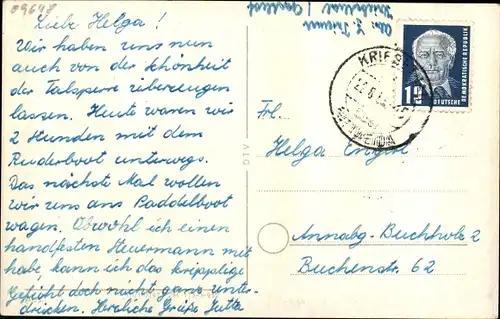 09648
Liebe Helga!
Wir haben uns nun
auch von der Schönheit
der Talsperre überzeugen
lassen. Heute waren wir
2 Stunden mit dem
Ruderboot unterwegs.
Das nächste Mal wollen
wir uns ans Paddelboot
wagen. Obwohl ich einen
handfesten Steuermann mit
habe, kann ich das kripplige
Gefühl doch nicht ganz unter-
drücken. Herzliche Grüße Jutta
Abs.
KRIEB
MITTWEIDA
DEUTSCHE
DEMOKRATISCHE REPUBLIK
DTV
Frl.
Helga
Annabg.-Buchholz 2
Buchenstr. 62